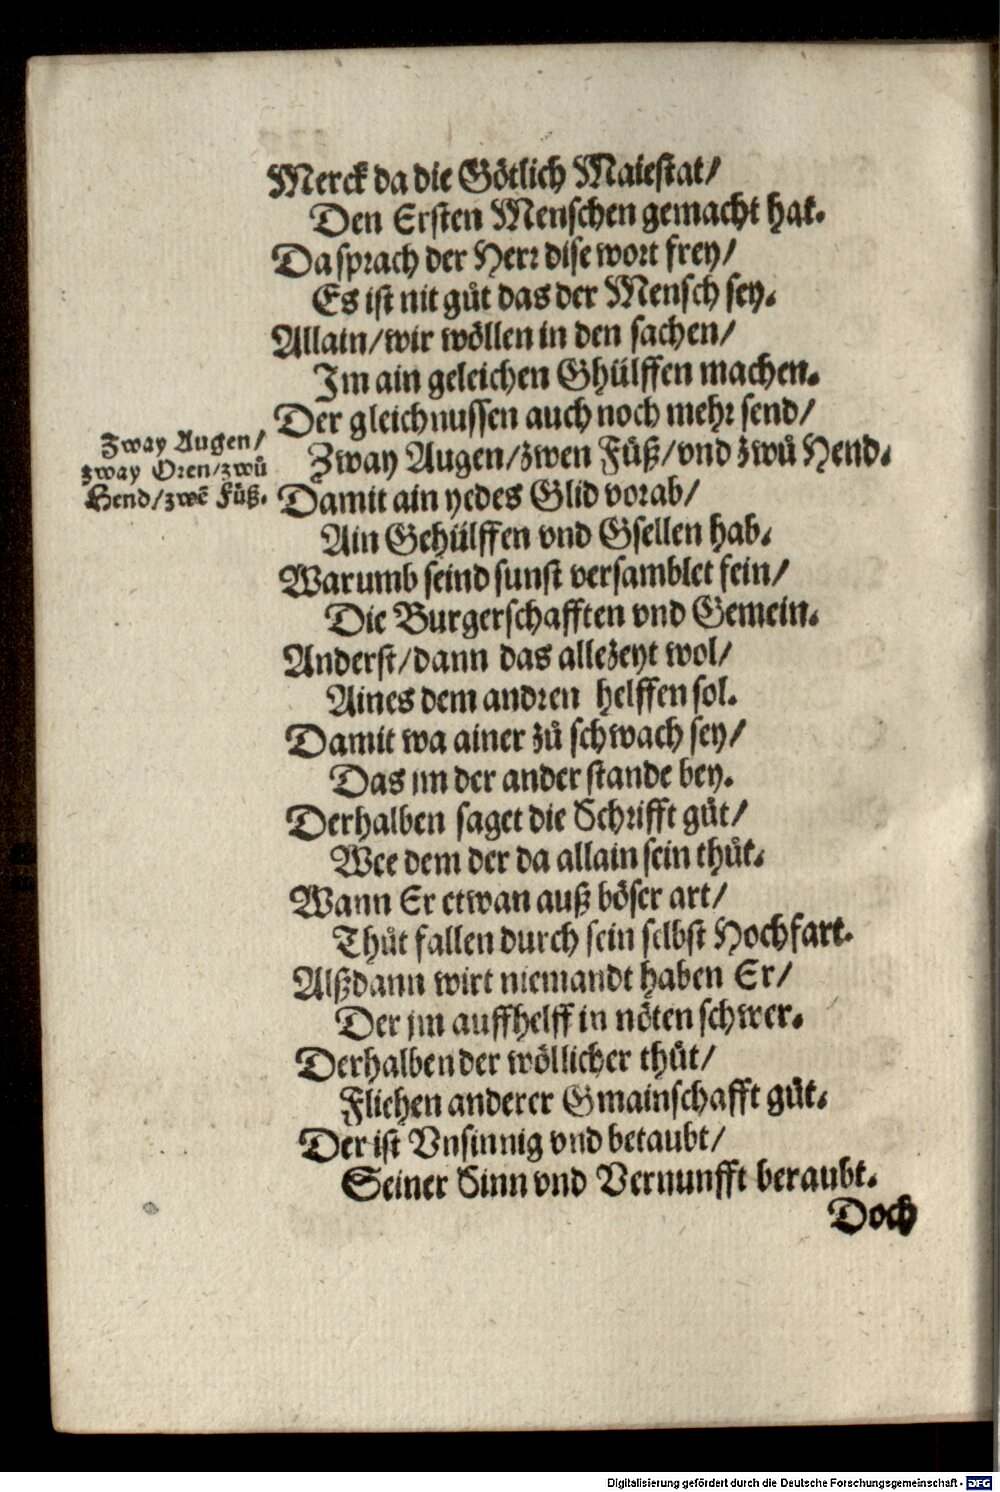 Merck da die Götlich Maiestat/
Den Ersten Menschen gemacht hat.
Da sprach der Herr dise wort frey/
Es ist nit gůt das der Mensch sey.
Allain/wir wöllen in den sachen/
Im ain geleichen Ghülffen machen.
Der gleichnussen auch noch mehr send/
Zway Augen/
zway Oren/zwů
Hend/zwẽ Füß.
Zway Augen/zwen Füß/vnd zwů Hend.
Damit ain yedes Glid vorab/
Ain Gehülffen vnd Gsellen hab.
Warumb seind sunst versamblet fein/
Die Burgerschafften vnd Gemein.
Anderst/dann das allezeyt wol/
Aines dem andren helffen sol.
Damit wa ainer zů schwach sey/
Das jm der ander stande bey.
Derhalben saget die Schrifft gůt/
Wee dem der da allain sein thůt.
Wann Er etwan auß böser art/
Thůt fallen durch sein selbst Hochfart.
Alßdann wirt niemandt haben Er/
Der jm auffhelff in nöten schwer.
Derhalben der wöllicher thůt/
Fliehen anderer Gmainschafft gůt.
Der ist Vnsinnig vnd betaubt/
Seiner Sinn vnd Vernunfft beraubt.
Doch
Digitalisierung gefördert durch die Deutsche Forschungsgemeinschaft - DFG